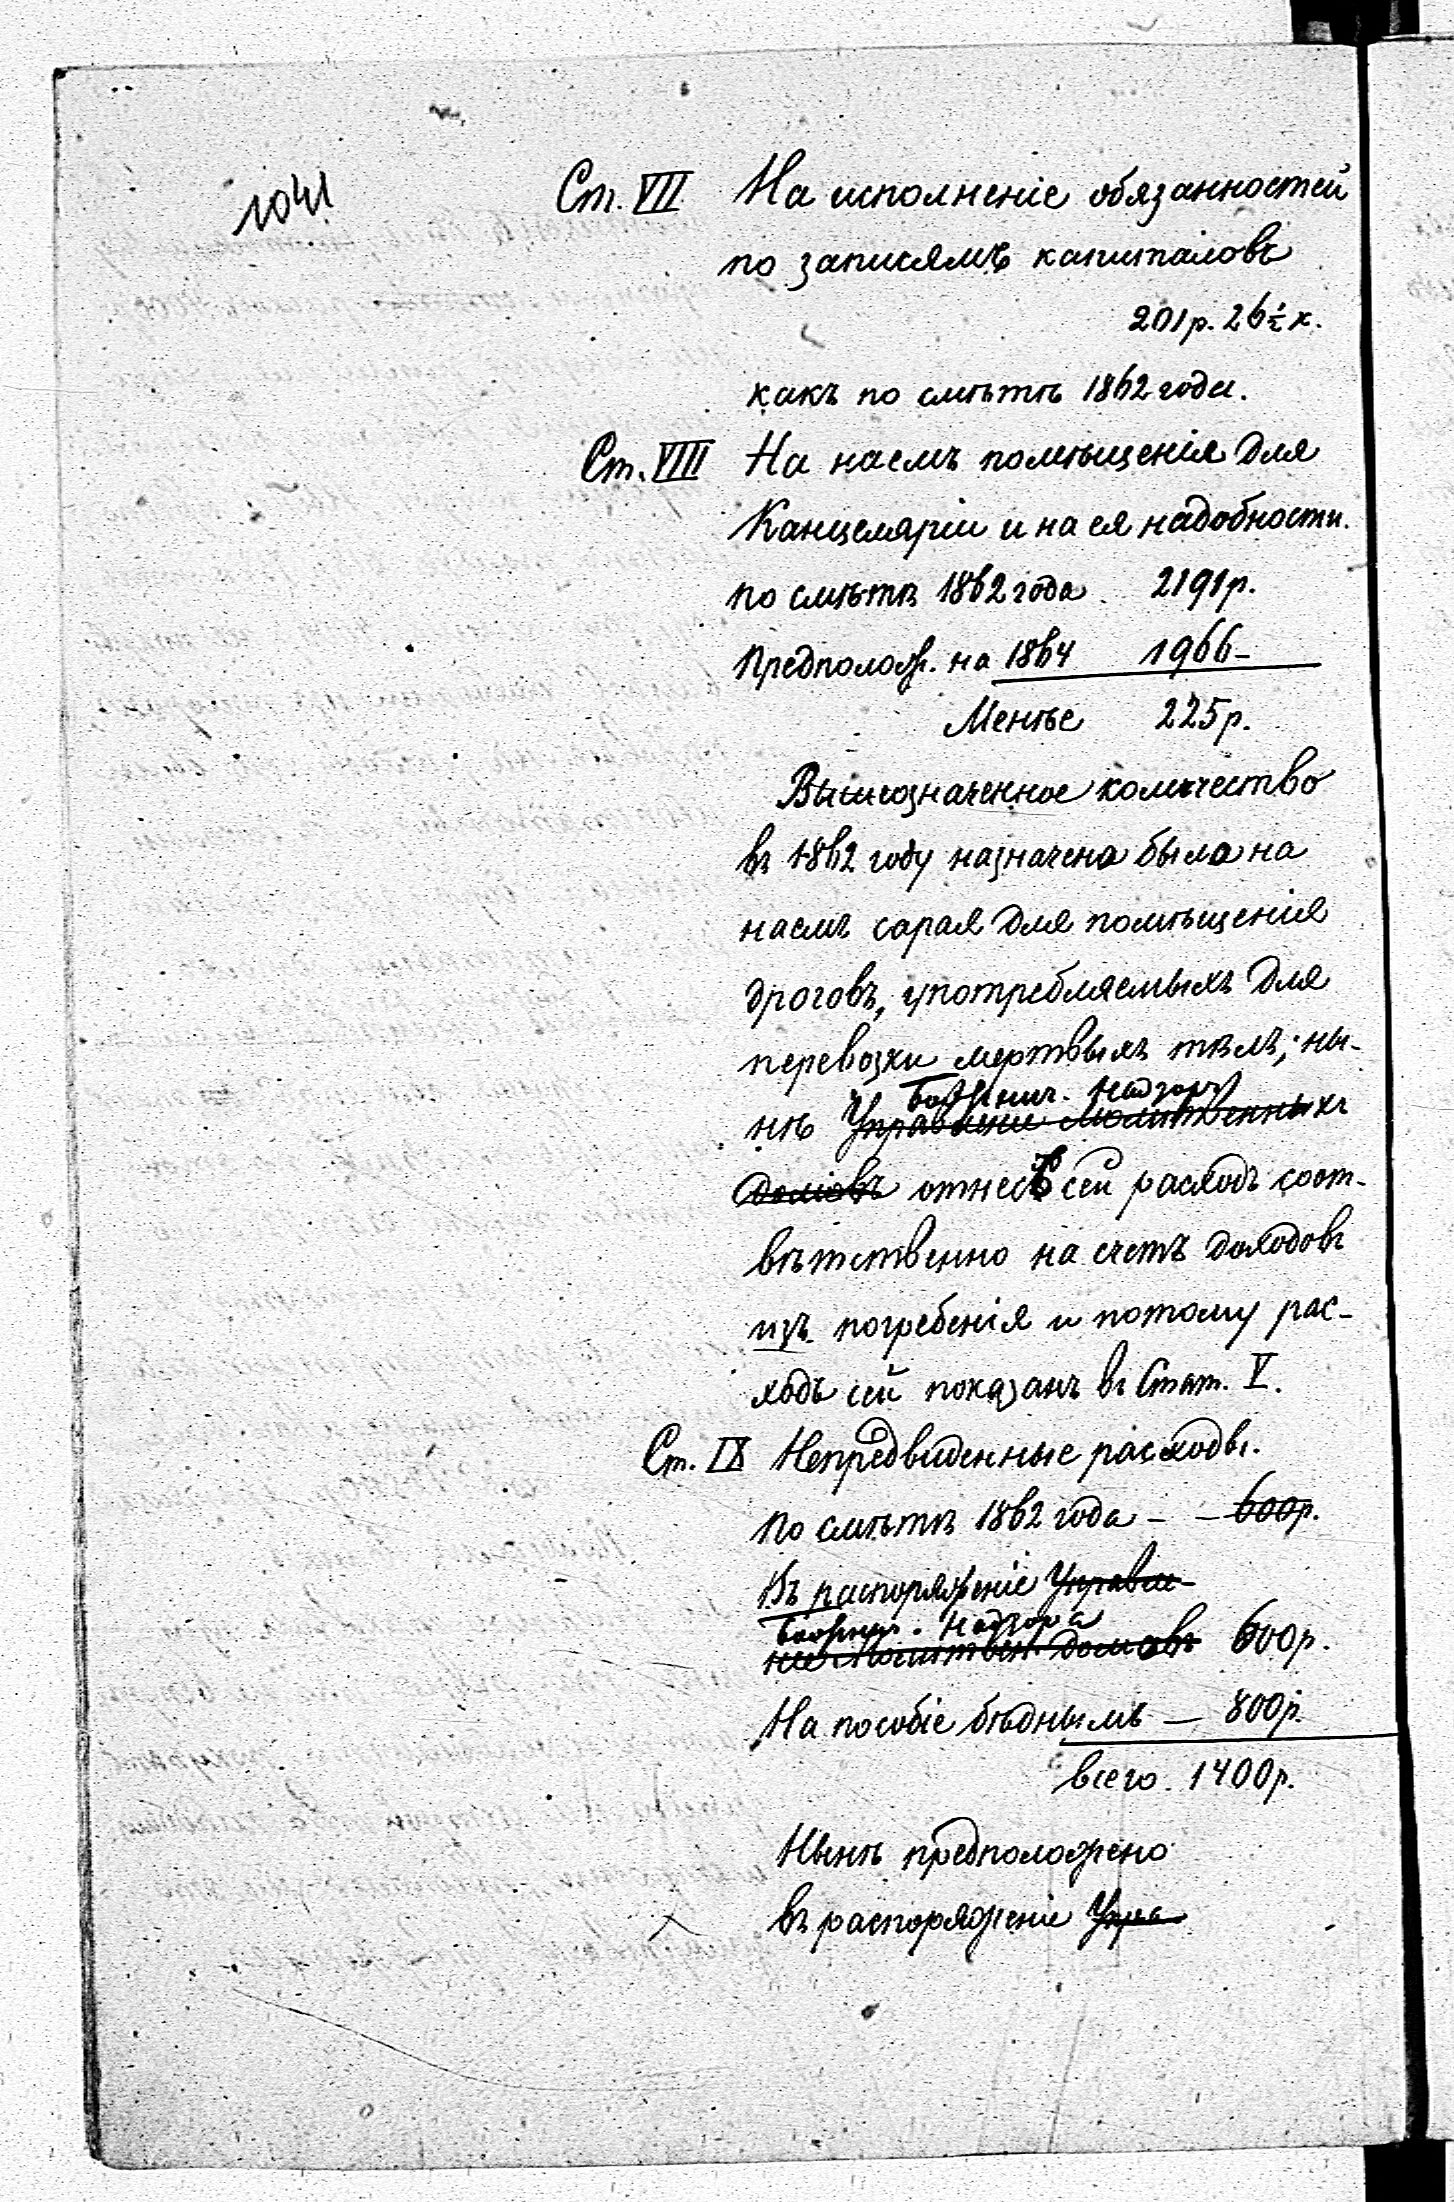 1041
Ст. VII На исполненіе обязанностей
по записямъ капиталовъ
201 р. 26½ к.
какъ по смѣтѣ 1862 года.
Ст. VIII На наемъ помѣщенія для
Канцеляріи и на ея надобности.
по смѣтѣ 1862 года 2191 р.
Предполож. на 1864 1966 –
Менѣе 225 р.
Вышеозначенное количество
въ 1862 году назначено было на
наемъ сарая для помѣщенія
дроговъ, употребляемыхъ для
перевозки мертвыхъ тѣлъ; ны-
Божнич. Надзоръ
нѣ Управленіе молитвенныхъ
домовъ отнесъ сей расходъ соот-
вѣтственно на счетъ доходовъ
изъ погребенія и потому рас-
ходъ сей показанъ въ Стат. V.
Ст. IX Непредвиденные расходы.
по смѣтѣ 1862 года – – 600 р.
Въ распоряженіе Управле-
Божнич. Надзора
нія Молитвен. домовъ 600 р.
На пособіе бѣднымъ – 800 р.
всего. 1400 р.
Нынѣ предположено
въ распоряженіе Упра